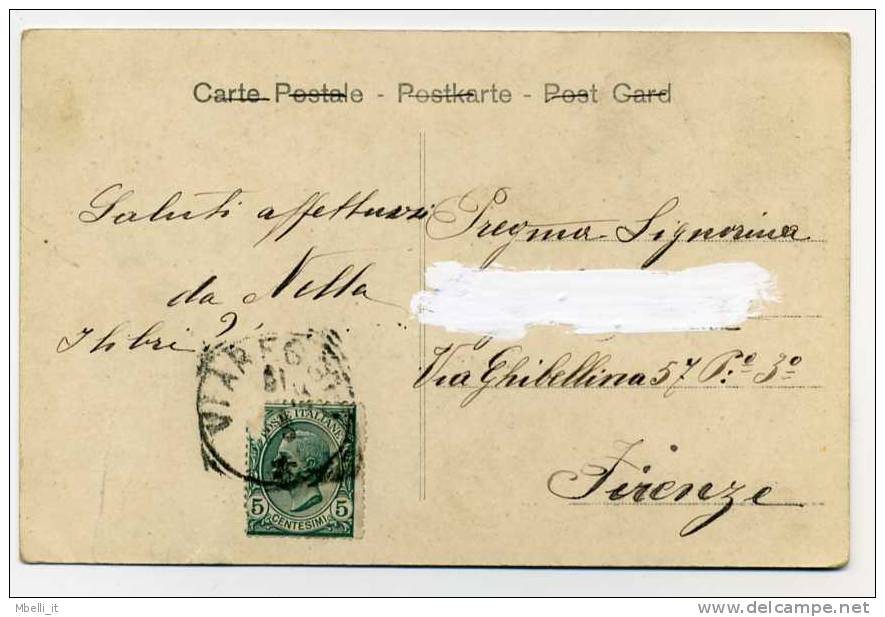 Carte Postale - Postkarte - Post Card
Saluti affettuosi
da Nella
I libri?
Pregma Signorina
Via Ghibellina 57 P.º 3º
Firenze
VIAREGGIO
POSTE ITALIANE
5 5
CENTESIMI
Mbelli_it
delcampe.net